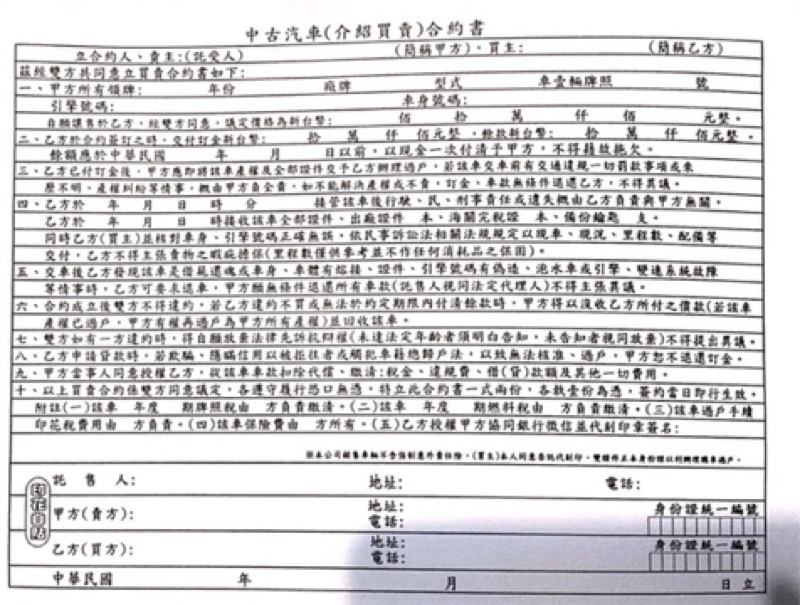 中古汽車(介紹買賣)合約書
立合約人、賣主:(託受人) (簡稱甲方)。買主: (簡稱乙方)
茲經雙方共同意立買賣合約書如下:
一、甲方所有領牌: 年份 廠牌 型式 車壹輛牌照 號
引擎號碼: 車身號碼:
自願讓售於乙方、經雙方同意、議定價格為新台幣: 佰 拾 萬 仟 佰 元整。
二、乙方於合約簽訂之時,交付訂金新台幣: 拾 萬 仟 佰元整,餘款新台幣: 拾 萬 仟 佰元整。
餘額應於中華民國 年 月 日以前,以現金一次付清予甲方,不得藉故拖欠。
三、乙方已付訂金後,甲方應即將該車產權及全部證件交予乙方辦理過戶,若該車交車前有交通違規一切罰款事項或來
歷不明、產權糾紛等情事,概由甲方負全責,如不能解決產權或不賣,訂金、車款無條件退還乙方,不得異議。
四、乙方於 年 月 日 時 分 接管該車後行駛、民、刑事責任或遺失概由乙方負責與甲方無關。
乙方於 年 月 日 時接收該車全部證件、出廠證件 本、海關完稅證 本、備份鑰匙 支。
同時乙方(買主)並核對車身、引擎號碼正確無誤,依民事訴訟法相關法規規定以現車、現況、里程數、配備等
交付,乙方不得主張賣物之瑕疵擔保(里程數僅供參考並不作任何消耗品之保固)。
五、交車後乙方發現該車是借屍還魂或車身、車體有熔接、證件、引擎號碼有偽造、泡水車或引擎、變速系統故障
等情事時,乙方可要求退車,甲方願無條件退還所有車款(託售人視同法定代理人)不得主張異議。
六、合約成立後雙方不得違約,若乙方違約不買或無法於約定期限內付清餘款時,甲方得以沒收乙方所付之價款(若該車
產權已過戶,甲方有權再過戶為甲方所有產權)並回收該車。
七、雙方如有一方違約時,得自願放棄法律先訴抗辯權(未達法定年齡者須明白告知,未告知者視同放棄)不得提出異議。
八、乙方申請貸款時,若欺騙、隱瞞信用以被拒往者或觸犯車籍總歸戶法,以致無法核准、過戶,甲方恕不退還訂金。
九、甲方當事人同意授權乙方,從該車車款扣除代償、繳清:稅金、違規費、借(貸)款額及其他一切費用。
十、以上買賣合約係雙方同意議定,各遵守履行恐口無憑,特立此合約書一式兩份,各執壹份為憑,簽約當日即行生效。
附註(一)該車 年度 期牌照稅由 方負責繳清。(二)該車 年度 期燃料稅由 方負責繳清。(三)該車過戶手續
印花稅費用由 方負責。(四)該車保險費由 方所有。(五)乙方授權甲方協同銀行徵信並代刻印章簽名:
※本公司銷售車輛不含強制意外責任險。(買主)本人同意委託代刻印、雙證件正本身份證以利辦理購車過戶。
託售人: 地址: 電話:
印花自貼
甲方(賣方): 地址: 身份證統一編號
電話:
乙方(買方): 地址: 身份證統一編號
電話:
中華民國 年 月 日立